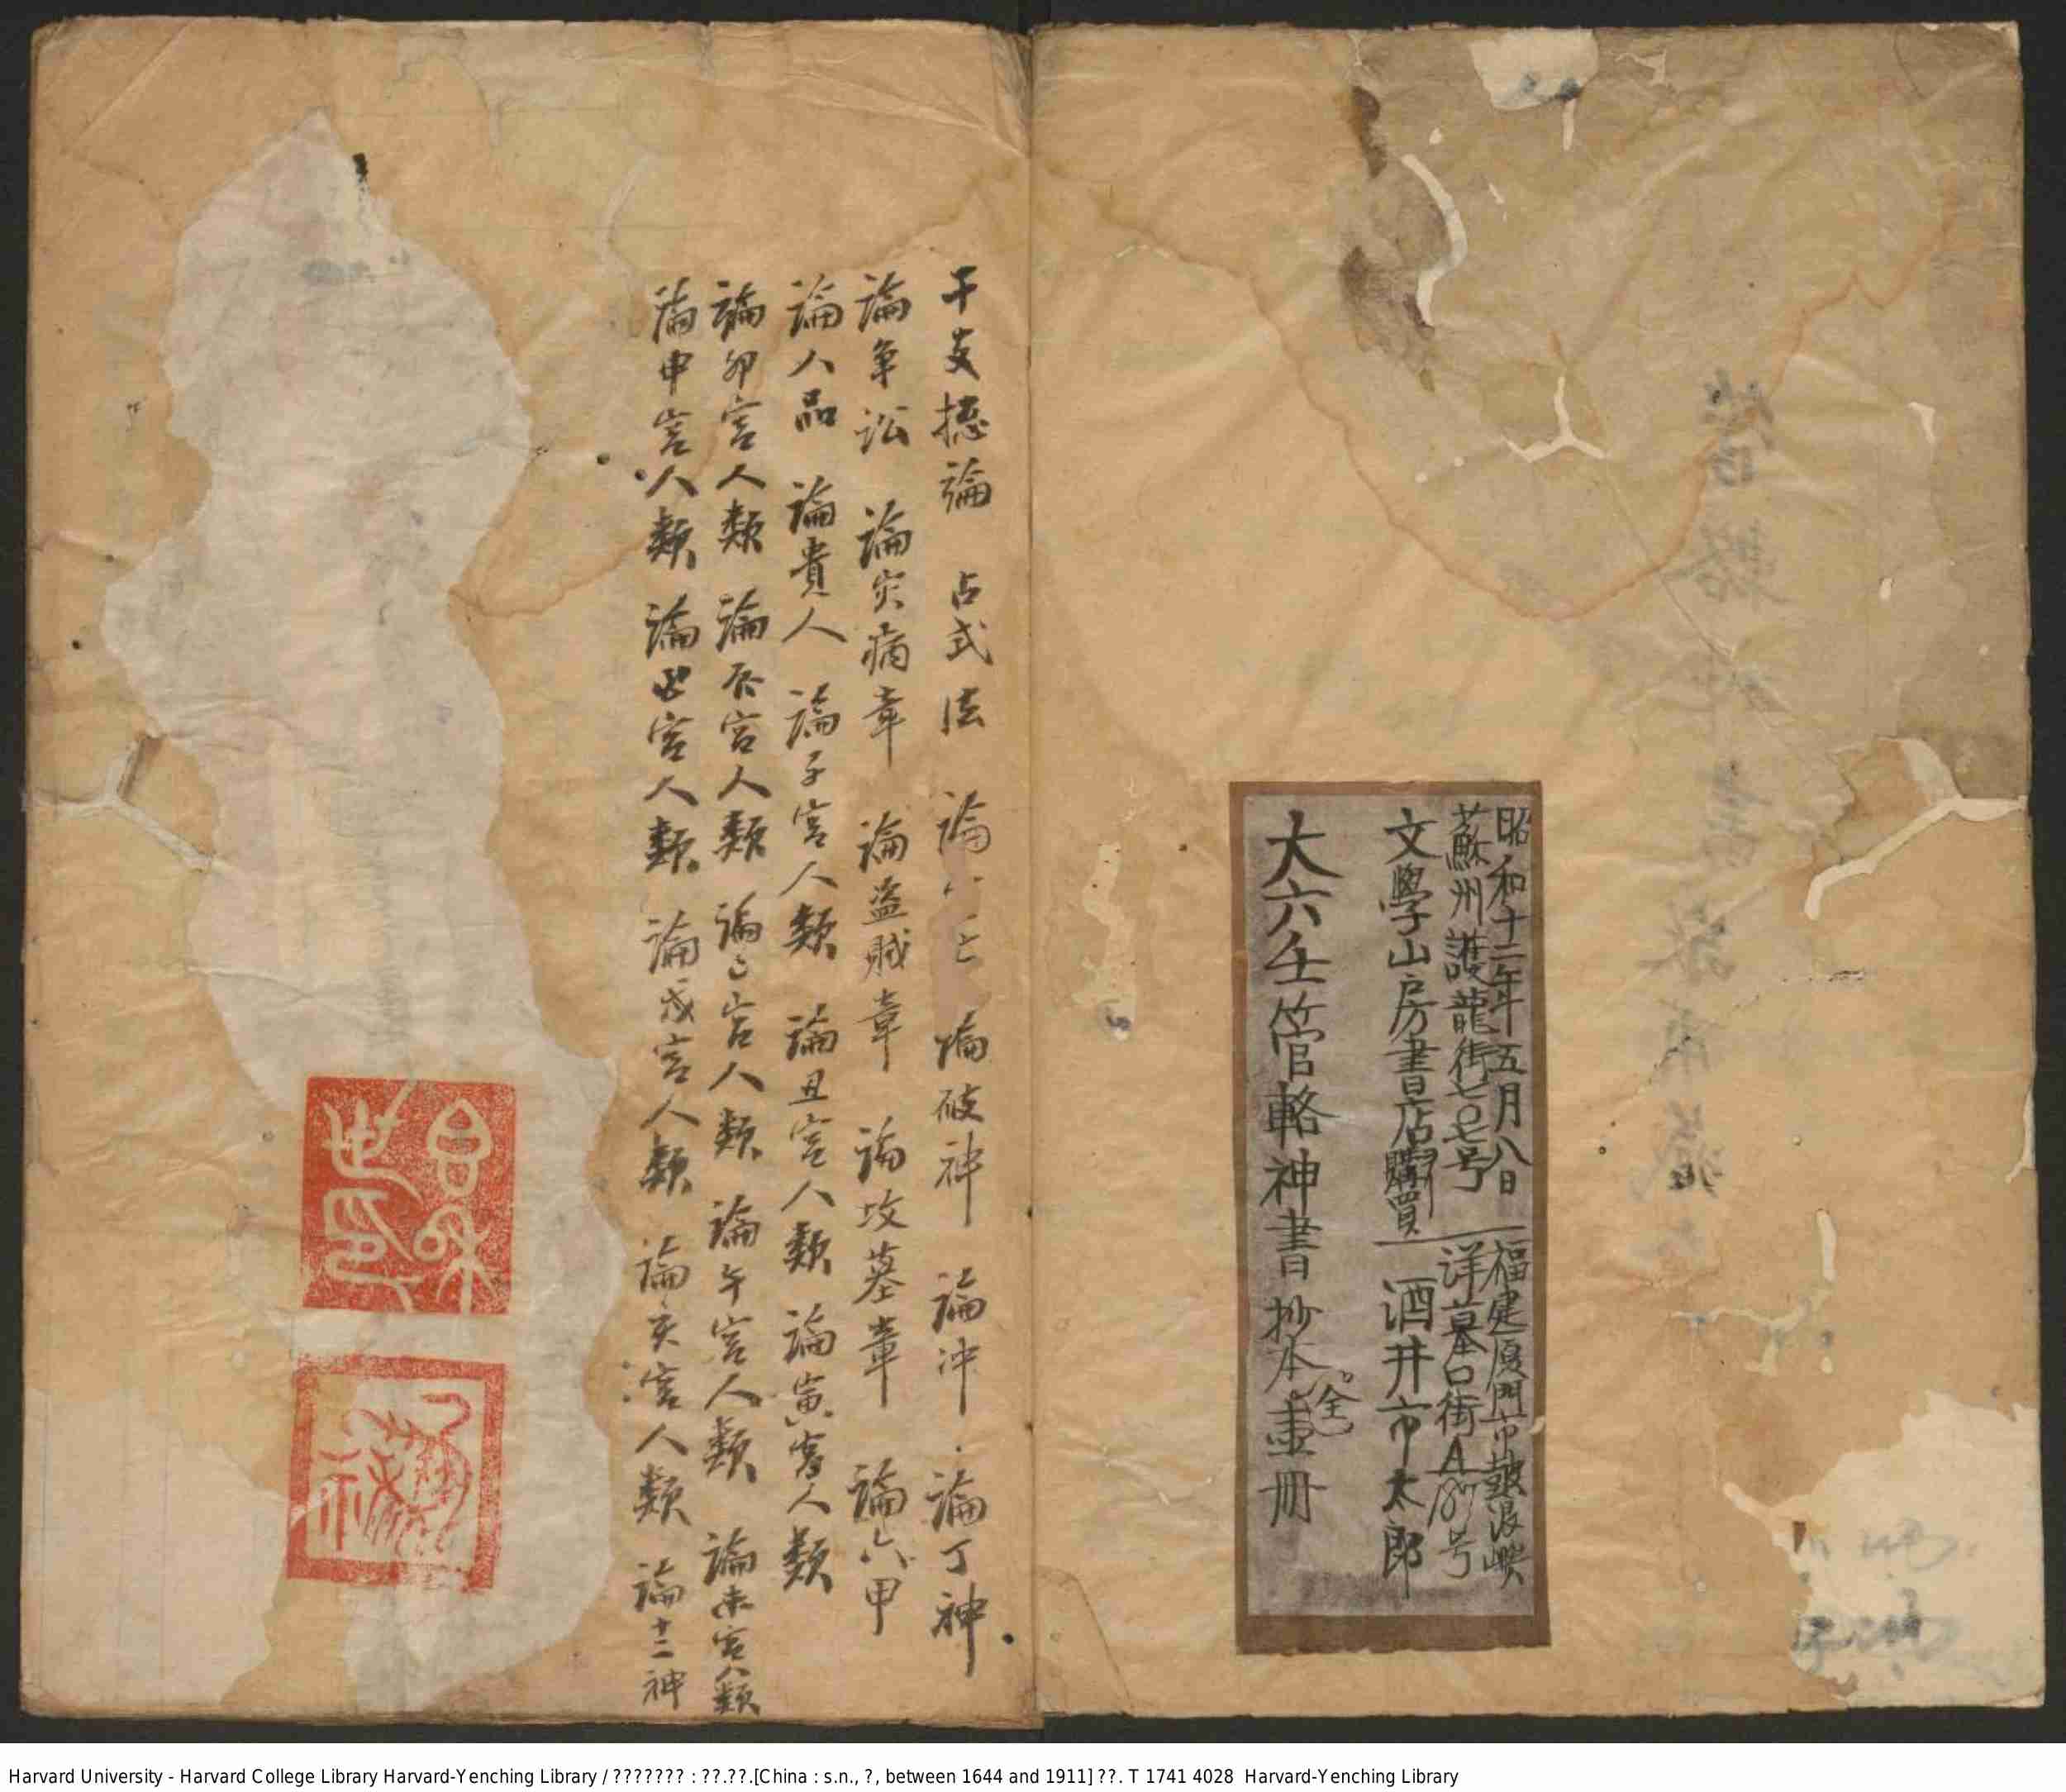 昭和十二年五月八日
蘇州護龍街七〇七号
文學山房書店購買
福建厦門市鼓浪嶼
洋墓口街A187号
酒井市太郎
大六壬管輅神書抄本壹冊
全
干支摠論 占式法 論 論破神 論冲 論丁神
論争訟 論灾病章 論盗賊章 論坟墓章 論六甲
論人品 論貴人 論子宫人類 論丑宫人類 論寅宫人類
論卯宫人類 論辰宫人類 論巳宫人類 論午宫人類 論未宫人類
論申宫人類 論酉宫人類 論戌宫人類 論亥宫人類 論十二神
Harvard University - Harvard College Library Harvard-Yenching Library / ??????? : ??.??.[China : s.n., ?, between 1644 and 1911] ??. T 1741 4028 Harvard-Yenching Library